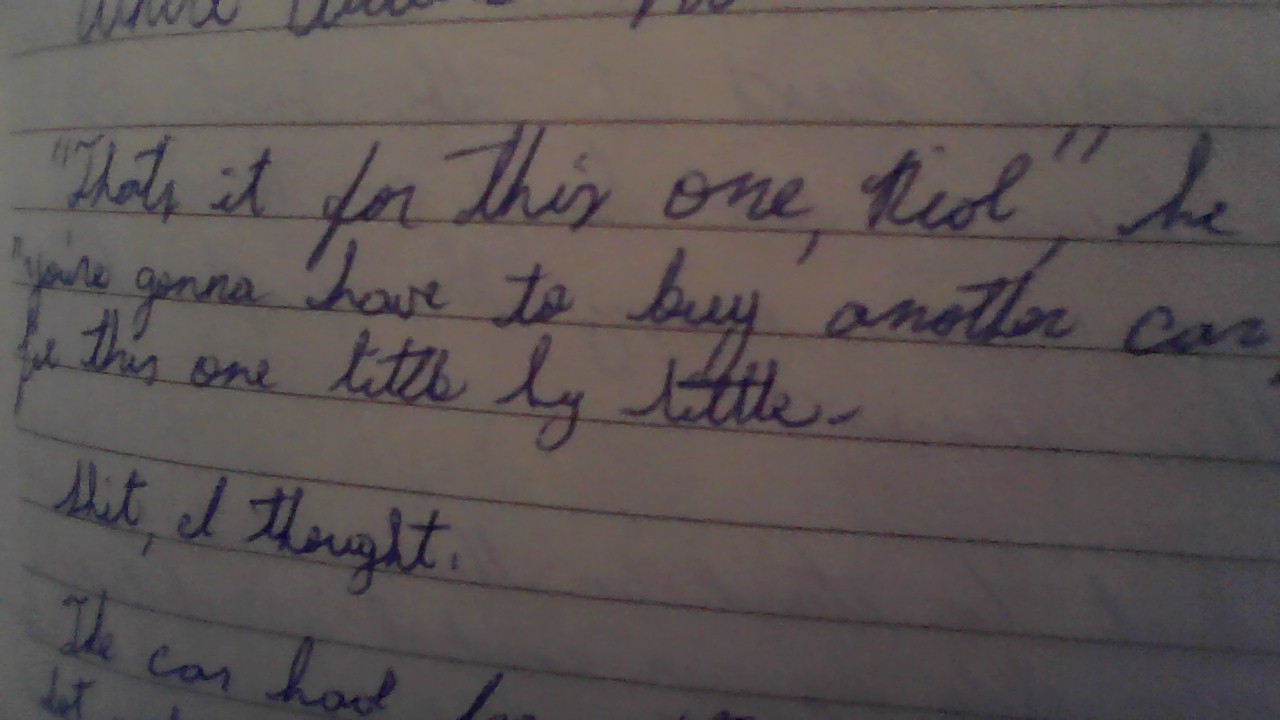 "Thats it for this one, Kid", he
"you're gonna have to buy another car,
fix this one little by little.
Shit, I thought.
The car had